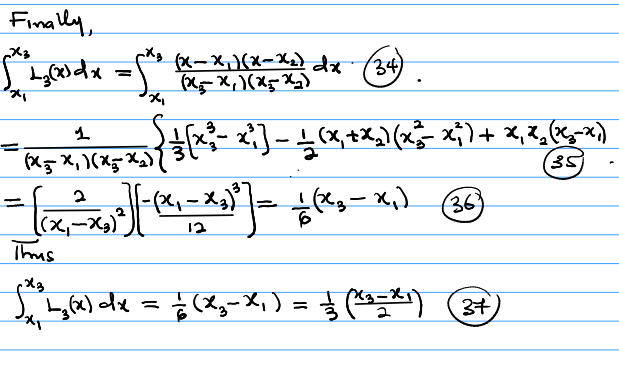 Finally,
∫_{x₁}^{x₃} L₃(x) dx = ∫_{x₁}^{x₃} (x-x₁)(x-x₂) / (x₃-x₁)(x₃-x₂) dx (34) .
= 1 / (x₃-x₁)(x₃-x₂) { 1/3 [x₃³ - x₁³] - 1/2 (x₁+x₂)(x₃² - x₁²) + x₁x₂(x₃-x₁) (35)
= [2 / (x₁-x₃)²] [-(x₁-x₃)³ / 12] = 1/6 (x₃ - x₁) (36)
Thus
∫_{x₁}^{x₃} L₃(x) dx = 1/6 (x₃-x₁) = 1/3 (x₃-x₁ / 2) (37)